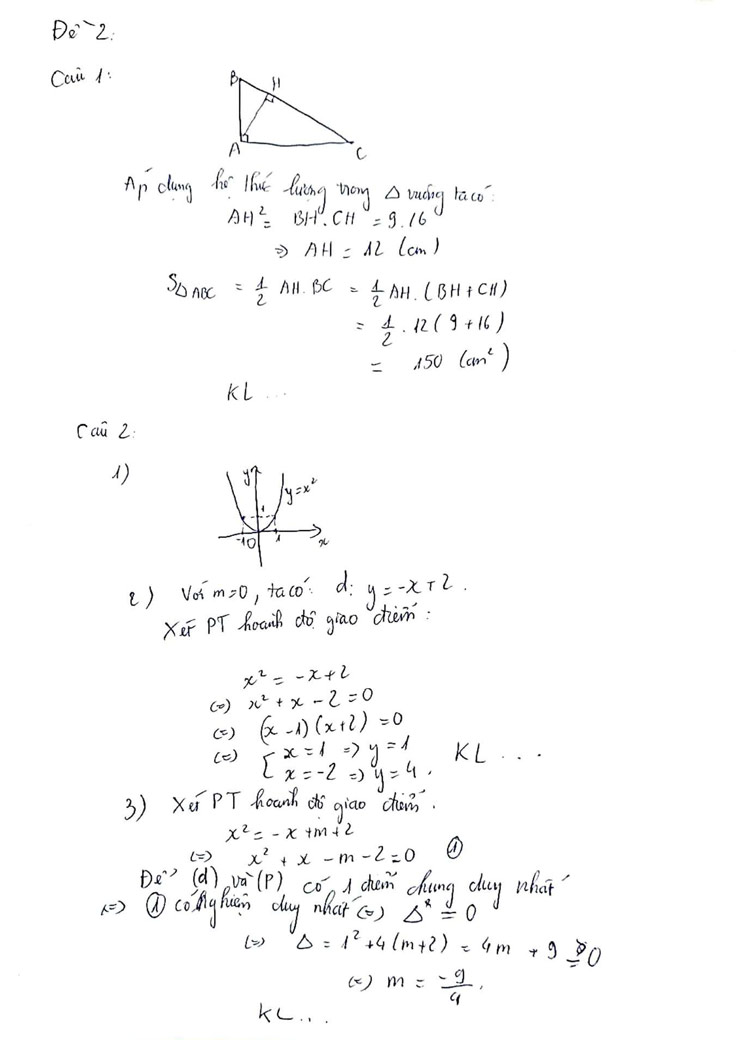 Đề 2:
Câu 1:
B H
A C
Áp dụng hệ thức lượng trong Δ vuông ta có:
AH² = BH.CH = 9.16
=> AH = 12 (cm)
SΔABC = 1/2 AH.BC = 1/2 AH.(BH+CH)
= 1/2 . 12(9+16)
= 150 (cm²)
KL ...
Câu 2:
1)
y y=x²
1
-1 O 1 x
2) Với m=0, ta có: d: y=-x+2.
Xét PT hoành độ giao điểm:
x² = -x+2
(=) x² + x - 2 = 0
(=) (x-1)(x+2) = 0
(=) [ x=1 => y=1 KL ...
x=-2 => y=4.
3) Xét PT hoành độ giao điểm.
x² = -x+m+2
(=) x² + x - m - 2 = 0 ①
Để (d) và (P) có 1 điểm chung duy nhất
(=) ① có nghiệm duy nhất (=) Δ = 0
(=) Δ = 1² + 4(m+2) = 4m + 9 = 0
(=) m = -9/4.
KL...